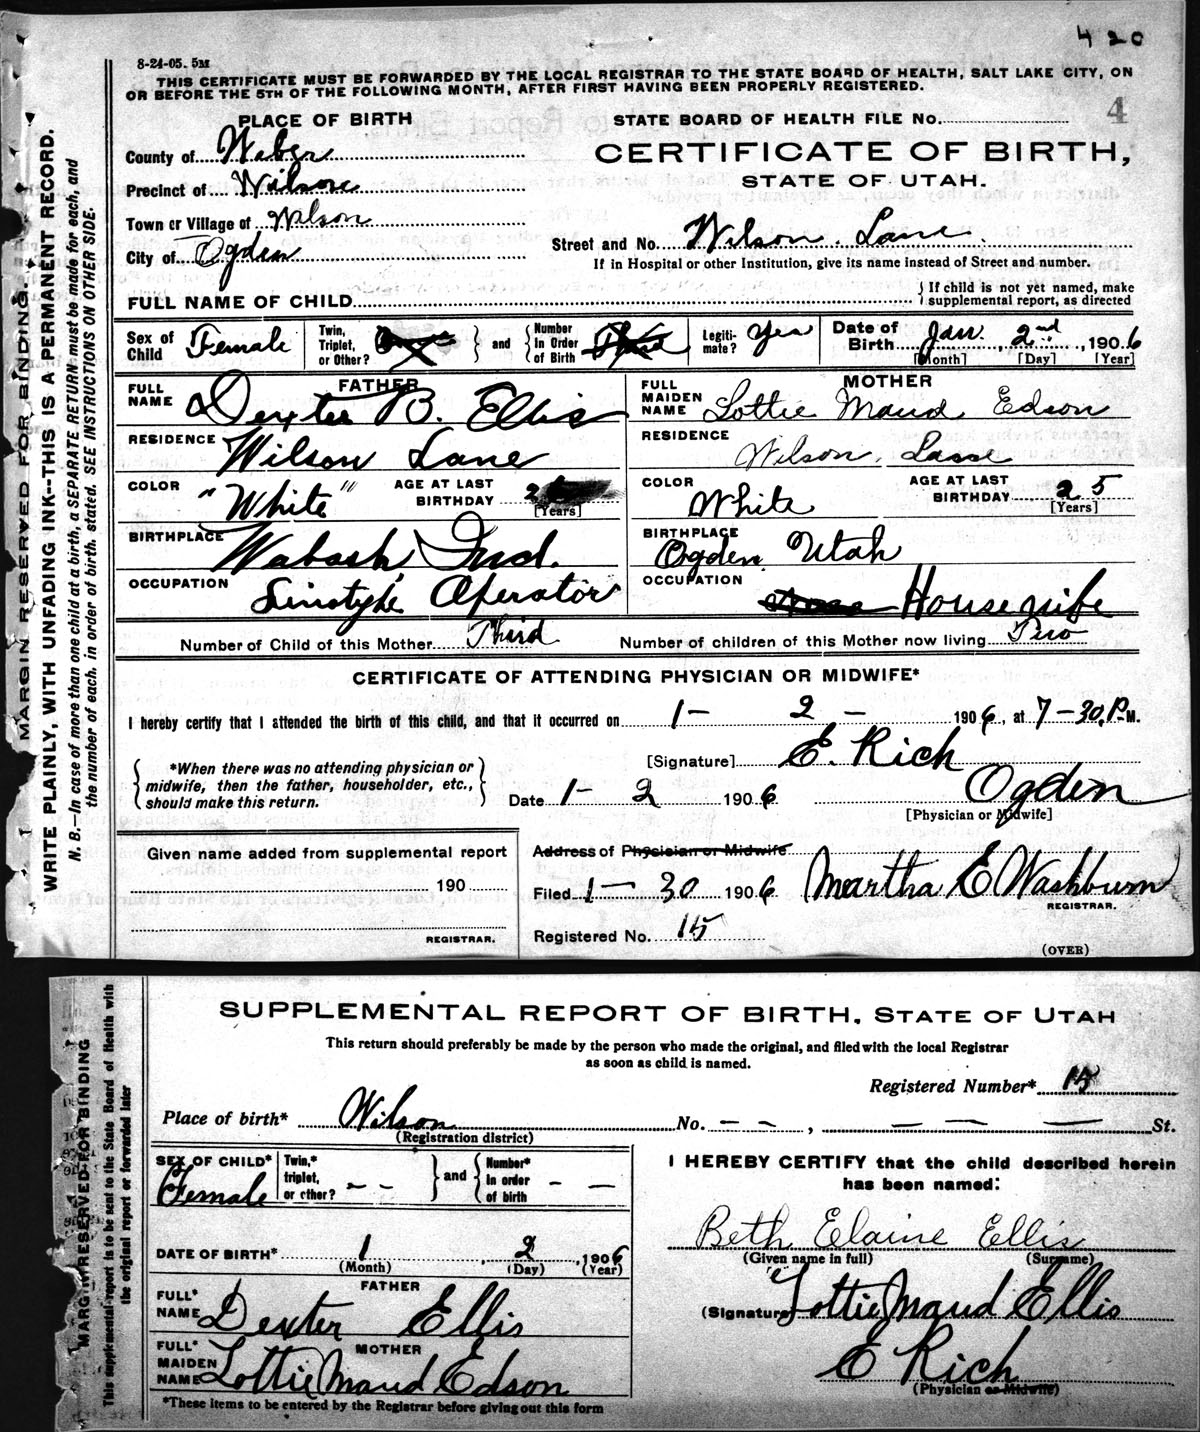 420
8-24-05. 5M
THIS CERTIFICATE MUST BE FORWARDED BY THE LOCAL REGISTRAR TO THE STATE BOARD OF HEALTH, SALT LAKE CITY, ON
OR BEFORE THE 5TH OF THE FOLLOWING MONTH, AFTER FIRST HAVING BEEN PROPERLY REGISTERED.
MARGIN RESERVED FOR BINDING.
WRITE PLAINLY, WITH UNFADING INK--THIS IS A PERMANENT RECORD.
N. B.—In case of more than one child at a birth, a SEPARATE RETURN must be made for each, and
the number of each, in order of birth, stated. SEE INSTRUCTIONS ON OTHER SIDE.
PLACE OF BIRTH
County of Weber
Precinct of Wilson
Town or Village of Wilson
City of Ogden
STATE BOARD OF HEALTH FILE No. 4
CERTIFICATE OF BIRTH,
STATE OF UTAH.
Street and No. Wilson Lane.
If in Hospital or other Institution, give its name instead of Street and number.
FULL NAME OF CHILD
If child is not yet named, make
supplemental report, as directed
Sex of Child Female
Twin, Triplet, or Other?
and
Number In Order of Birth
Legiti-mate? Yes
Date of Birth Jan. 2nd, 1906
[Month] [Day] [Year]
FATHER
FULL NAME Dexter B. Ellis
RESIDENCE Wilson Lane
COLOR "White"
AGE AT LAST BIRTHDAY 26
[Years]
BIRTHPLACE Wabash Ind.
OCCUPATION Linotype Operator
MOTHER
FULL MAIDEN NAME Lottie Maud Edson
RESIDENCE Wilson Lane
COLOR White
AGE AT LAST BIRTHDAY 25
[Years]
BIRTHPLACE Ogden Utah
OCCUPATION Housewife
Number of Child of this Mother Third Number of children of this Mother now living Two
CERTIFICATE OF ATTENDING PHYSICIAN OR MIDWIFE*
I hereby certify that I attended the birth of this child, and that it occurred on 1- 2 - 1906, at 7-30, P.M.
*When there was no attending physician or
midwife, then the father, householder, etc.,
should make this return.
[Signature] E. Rich
Date 1- 2 1906 Ogden
[Physician or Midwife]
Given name added from supplemental report
190
REGISTRAR.
Address of Physician or Midwife
Filed 1- 30 1906 Martha E Washburn
REGISTRAR.
Registered No. 15
(OVER)
MARGIN RESERVED FOR BINDING
This supplemental report is to be sent to the State Board of Health with
the original report or forwarded later
SUPPLEMENTAL REPORT OF BIRTH, STATE OF UTAH
This return should preferably be made by the person who made the original, and filed with the local Registrar
as soon as child is named.
Registered Number* 15
Place of birth* Wilson No. – – , — — — St.
(Registration district)
SEX OF CHILD* Female
Twin,* triplet, or other? – –
and
Number* In order of birth – –
DATE OF BIRTH* 1 2, 1906
(Month) (Day) (Year)
FATHER
FULL* NAME Dexter Ellis
MOTHER
FULL* MAIDEN NAME Lottie Maud Edson
*These items to be entered by the Registrar before giving out this form
I HEREBY CERTIFY that the child described herein
has been named:
Beth Elaine Ellis
(Given name in full) (Surname)
(Signature) Lottie Maud Ellis
E Rich
(Physician or Midwife)